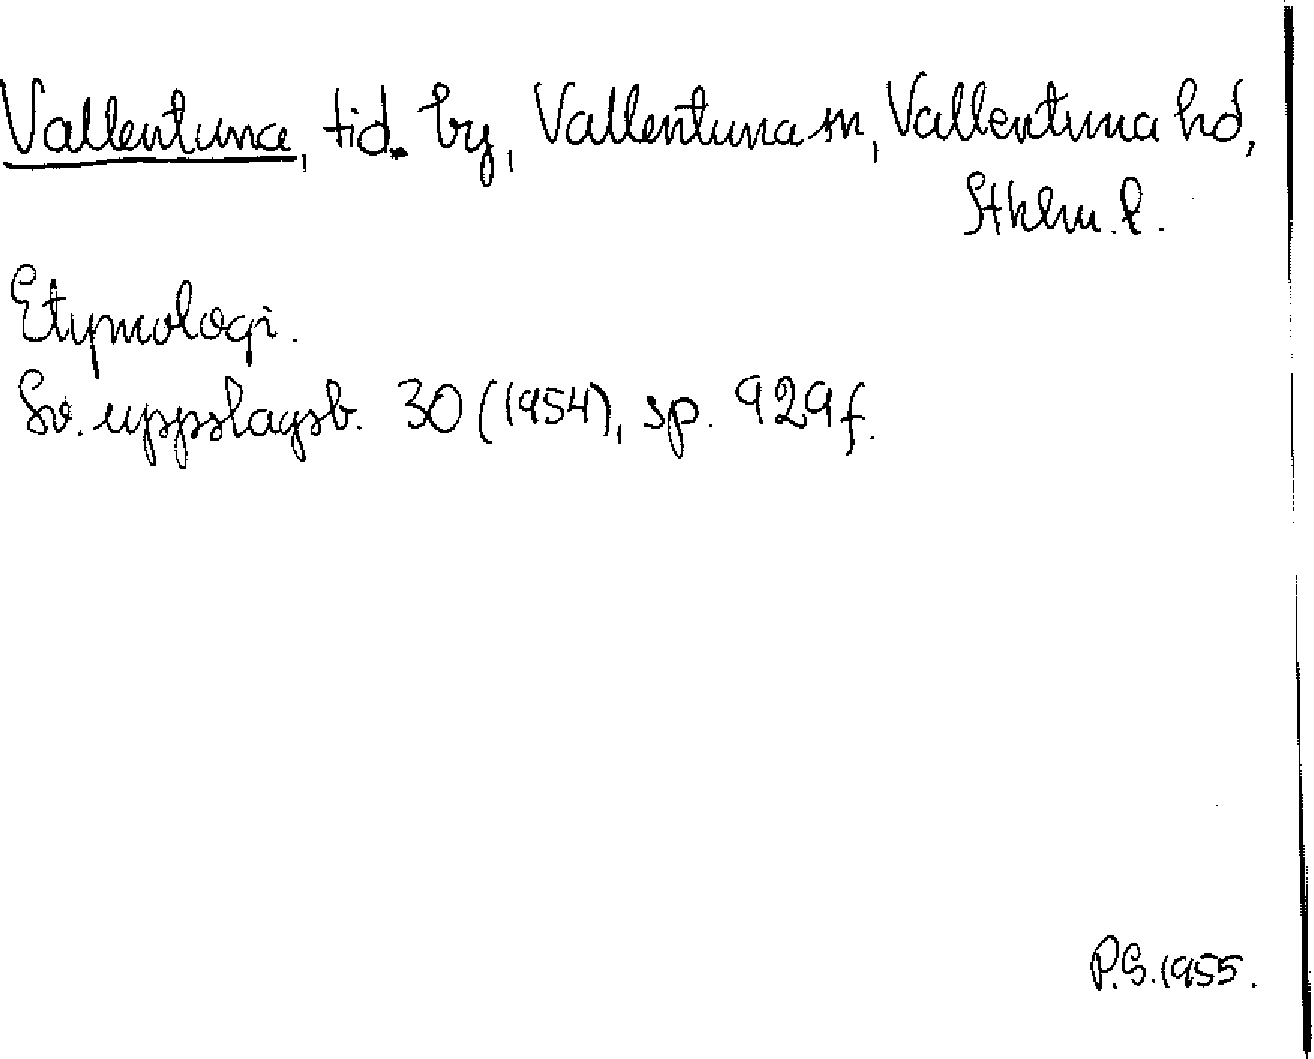 Vallentuna, tid. by, Vallentuna sn, Vallentuna hd,
Sthlm. l.
Etymologi.
Sv. uppslagsb. 30 (1954), sp. 929 f.
P.G. 1955.